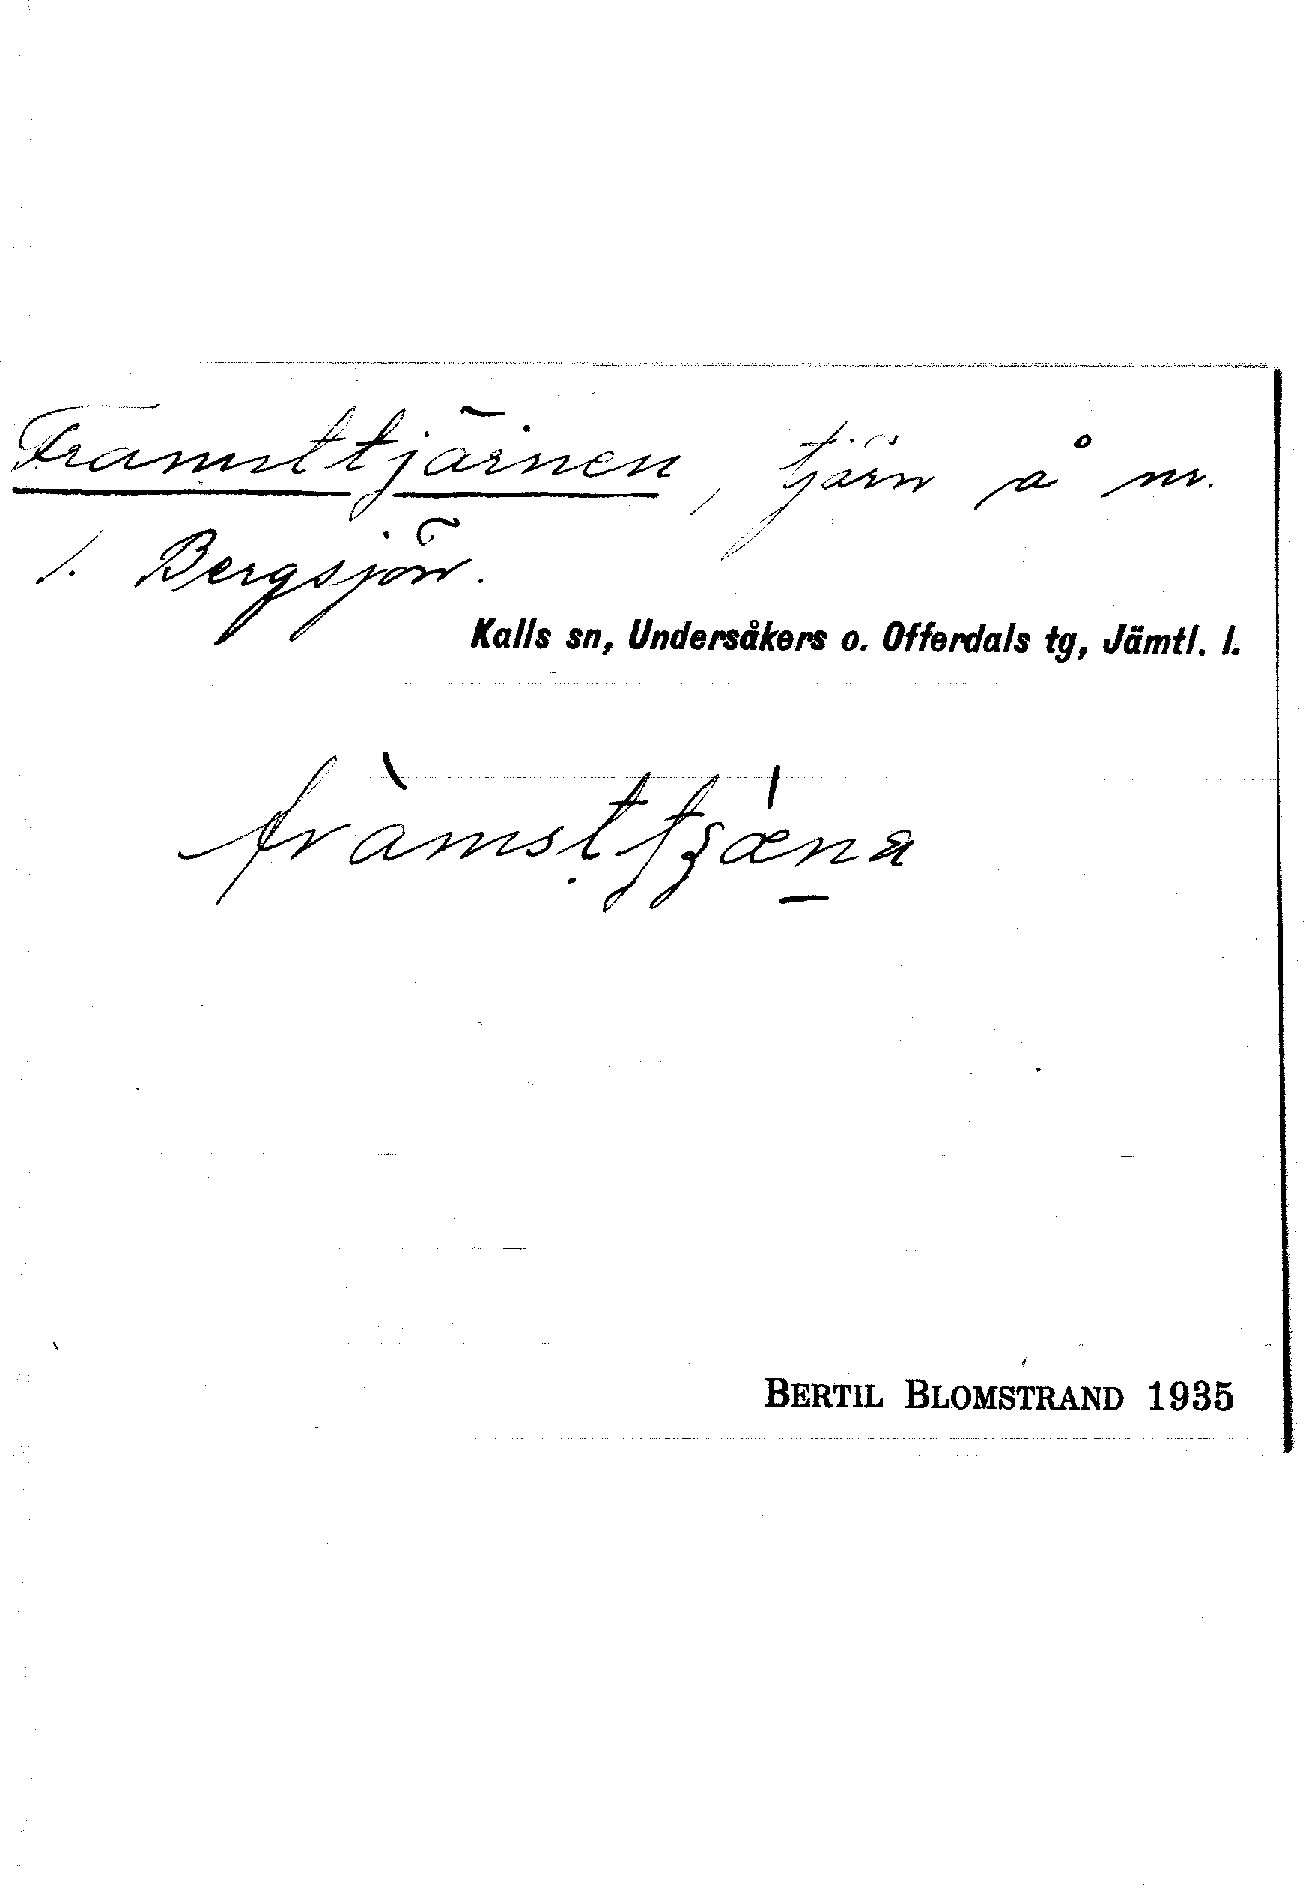 Framsttjärnen, tjärn å nr.
1. Bergsjön.
Kalls sn, Undersåkers o. Offerdals tg, Jämtl. l.
BERTIL BLOMSTRAND 1935